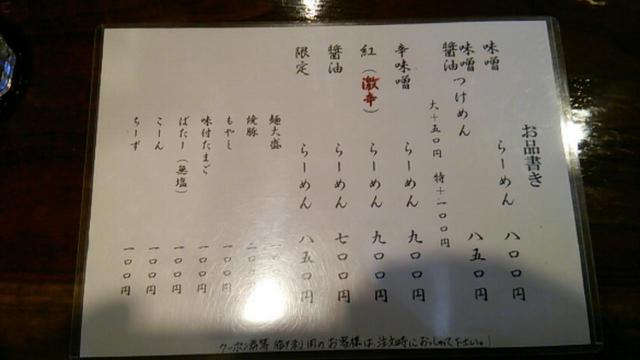 お品書き
味噌 らーめん 八〇〇円
味噌 醤油 つけめん 八五〇円
大+五〇円 特+一〇〇円
辛味噌 らーめん 九〇〇円
紅(激辛) らーめん 九〇〇円
醬油 らーめん 七〇〇円
限定 らーめん 八五〇円
麺大盛
焼豚
もやし 一〇〇円
味付たまご 一〇〇円
ばたー(無塩) 一〇〇円
こーん 一〇〇円
ちーず 一〇〇円
クーポン券等 御利用のお客様は、注文時におっしゃて下さい。